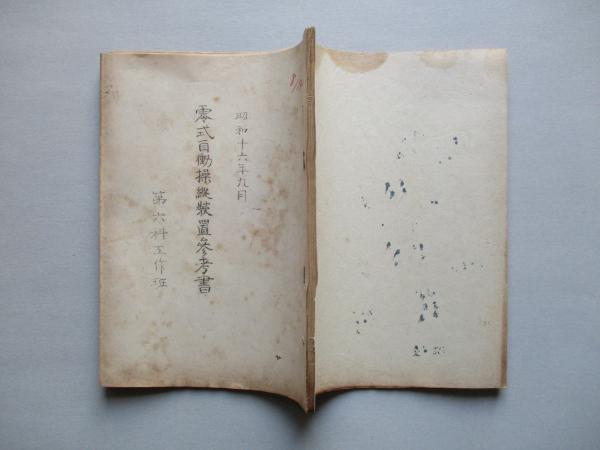 昭和十六年九月
零式自働操縦装置参考書
第六科工作班